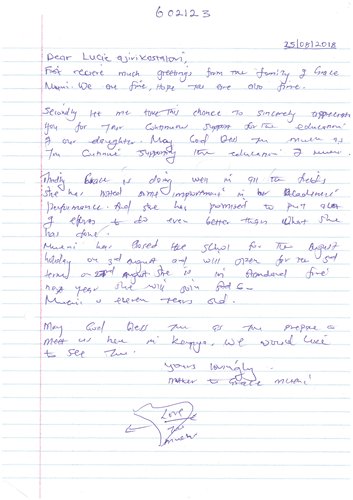 602123
25/08/2018
Dear Lucie
First receive much greetings from the family of Grace
Mueni. We are fine, Hope you are also fine.
Secondly let me take this chance to sincerely appreciate
you for your continuous support for the education
of our daughter. May God bless you much as
you continue supporting the education of Mueni.
Thirdly Grace is doing well in all the fields
she has noted some improvement in her academic
performance. And she has promised to put a lot
of efforts to do even better than what she
has done.
Mueni has closed the school for the August
holiday on 3rd august and will open for the 3rd
term on August she is in standard five
next year she will join std 6.
Mueni is eleven years old.
May God bless you as you prepare to
meet us here in Kenya. We would like
to see you.
Yours lovingly.
mother to Grace Mueni
Love
you
mueni